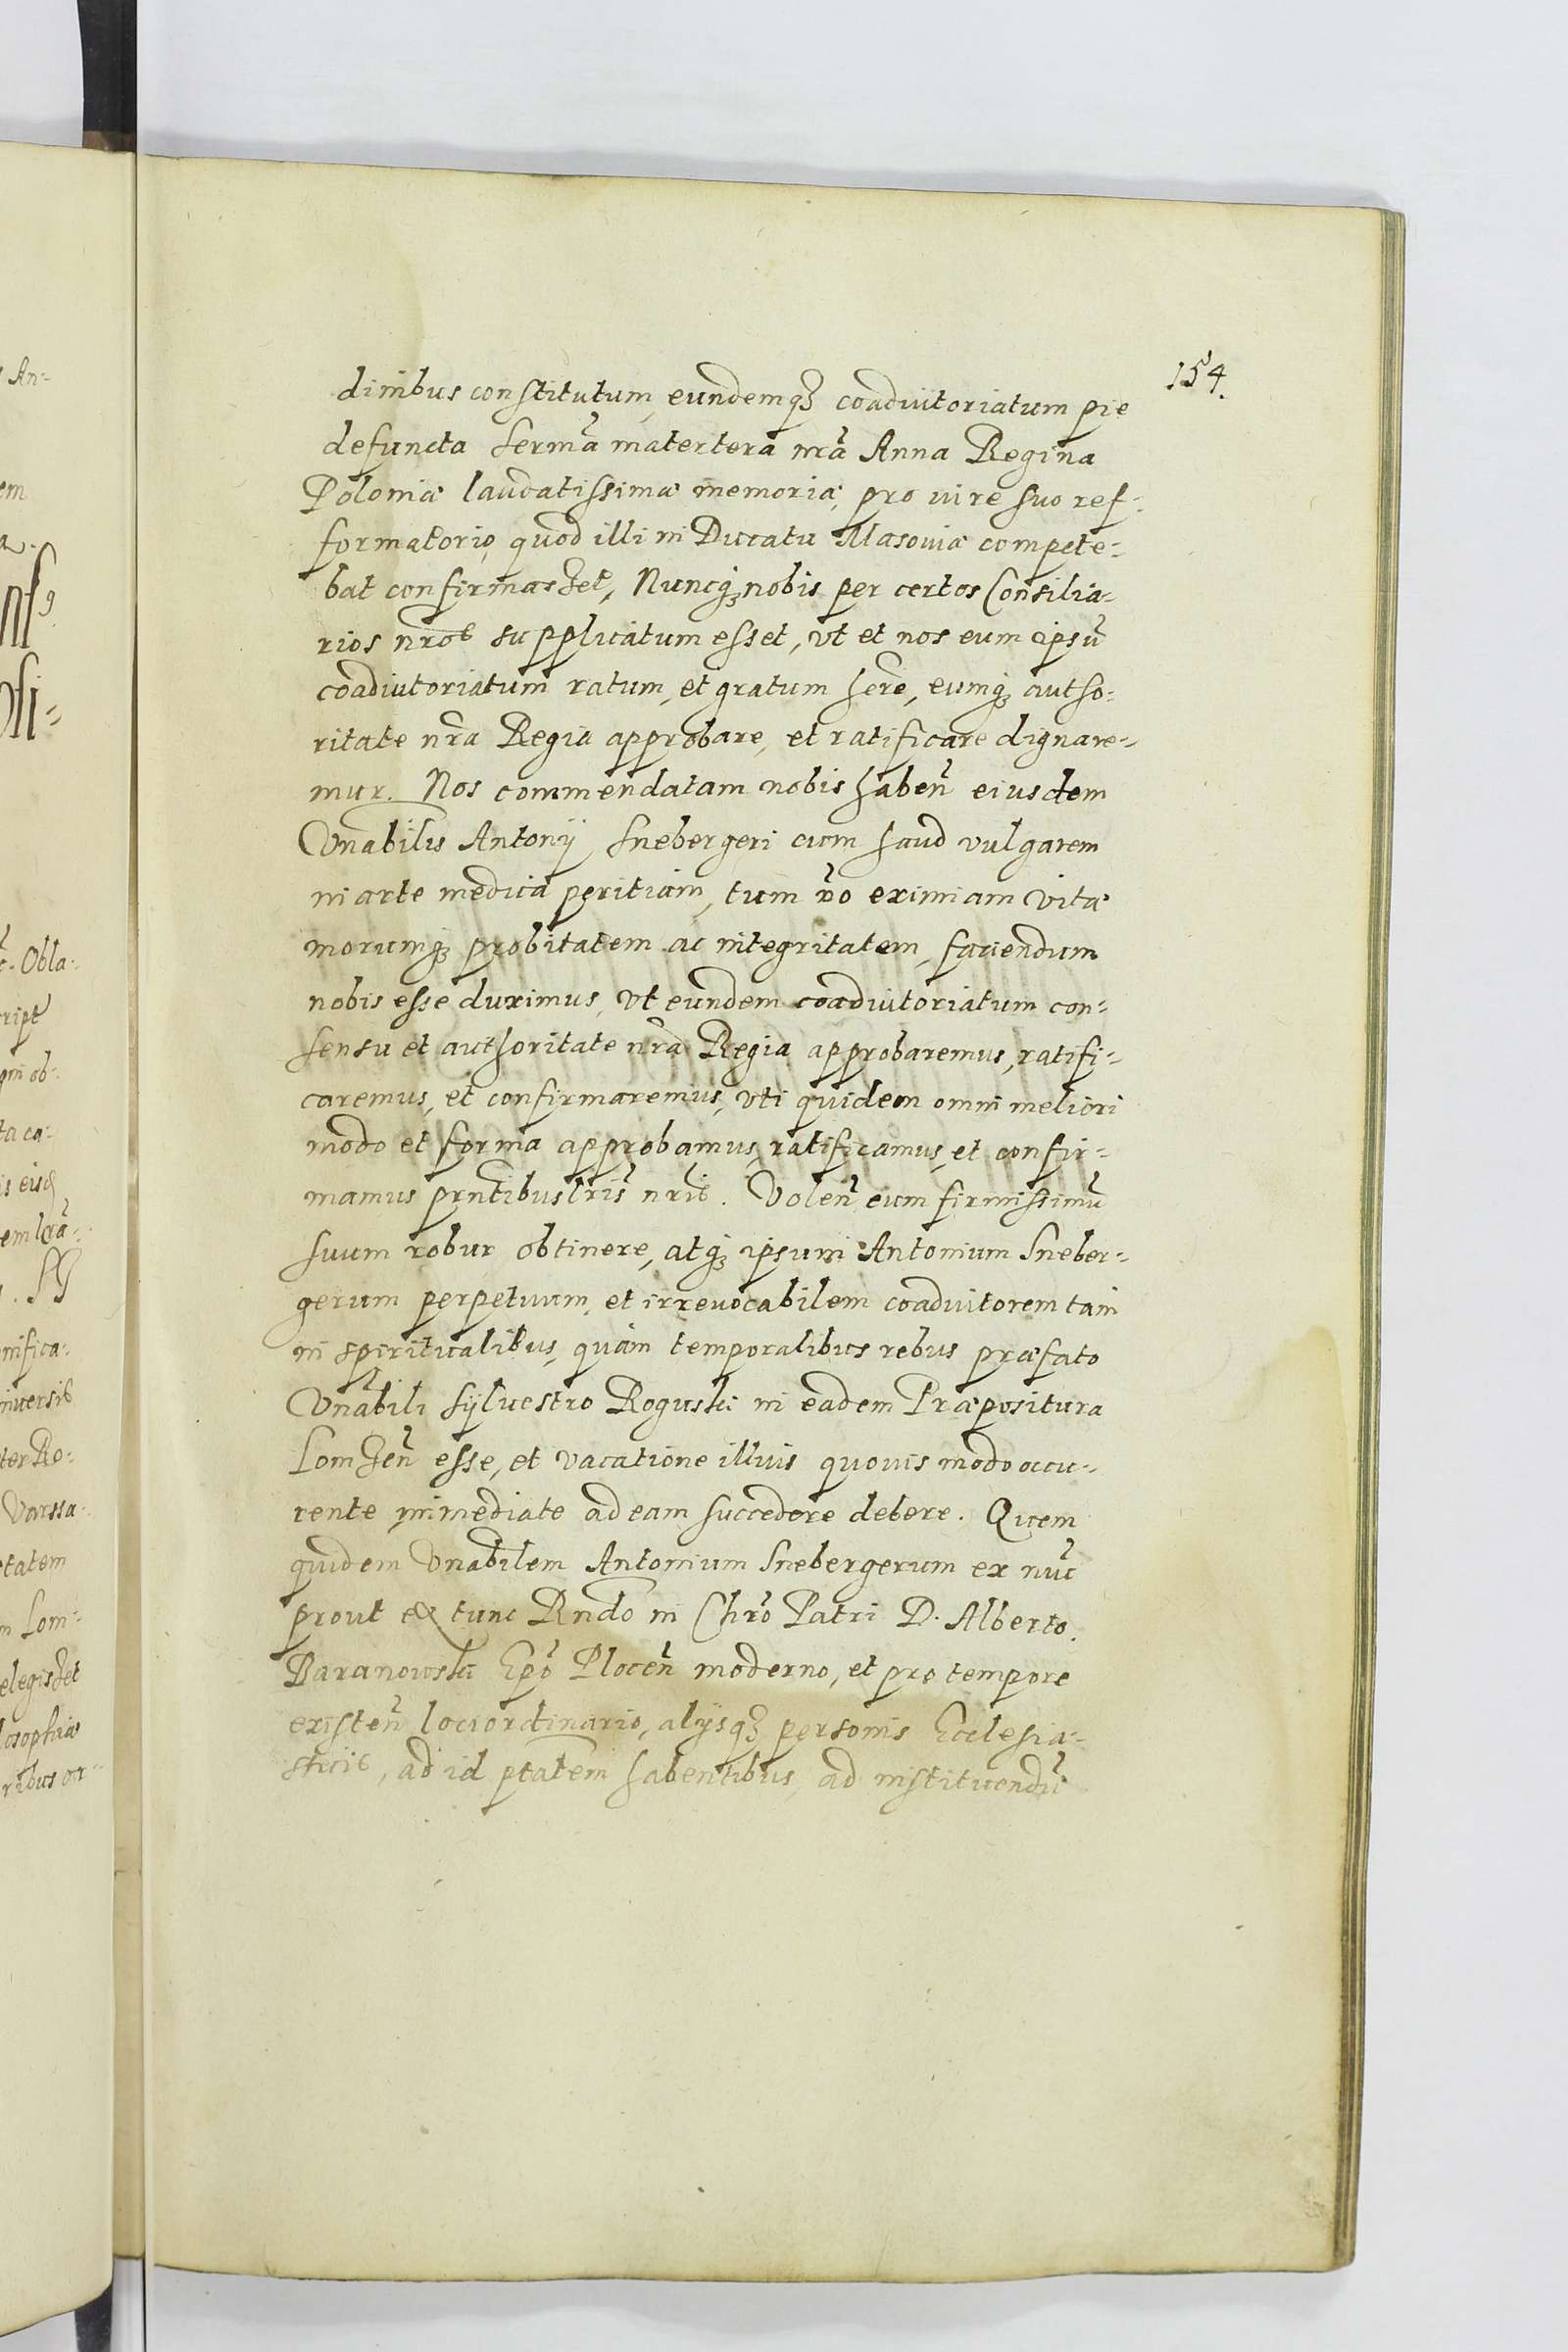 154.
dinibus constitutum, eundemq₃ coadiutoriatum pie
defuncta Serma matertera nra Anna Regina
Poloniæ laudatissimæ memoriæ, pro iure suo ref-
formatorio, quod illi in Ducatu Masouiæ compete-
bat confirmasset, Nuncq₃ nobis per certos Consilia-
rios nros supplicatum esset, vt et nos eum ipsū
coadiutoriatum ratum, et gratum here, eumq₃ autho-
ritate nra Regia approbare, et ratificare dignare-
mur. Nos commendatam nobis haben eiusdem
Vnabilis Antonÿ Snebergeri cum haud vulgarem
in arte medica peritiam, tum vo eximiam vitæ
morumq₃ probitatem ac integritatem, faciendum
nobis esse duximus, vt eundem coadiutoriatum con-
sensu et authoritate nra Regia approbaremus, ratifi-
caremus, et confirmaremus, vti quidem omni meliori
modo et forma approbamus, ratificamus, et confir-
mamus prntibus lris nris. Volen eum firmissimū
suum robur obtinere, atq₃ ipsum Antonium Sneber-
gerum perpetuum, et irreuocabilem coadiutorem tam
in spiritualibus, quàm temporalibus rebus præfato
Vnabili Syluestro Roguski in eadem Præpositura
Lomzen esse, et vacatione illius quouis modo occu-
rente immediate ad eam succedere debere. Quem
quidem Vnabilem Antonium Snebergerum ex nuc
prout ex tunc Rndo in Chro Patri D. Alberto
Baranowski Epo Plocen moderno, et pro tempore
existen loci ordinario, alÿsq₃ personis Ecclesia-
sticis, ad id ptatem habentibus, ad instituendū
An-
em
a.
Obla-
ript
ob-
ta ca-
is
nifica-
niuersis
ter Re-
Varssa-
tatem
m Lom-
elegisset
losophiæ
ribus or-